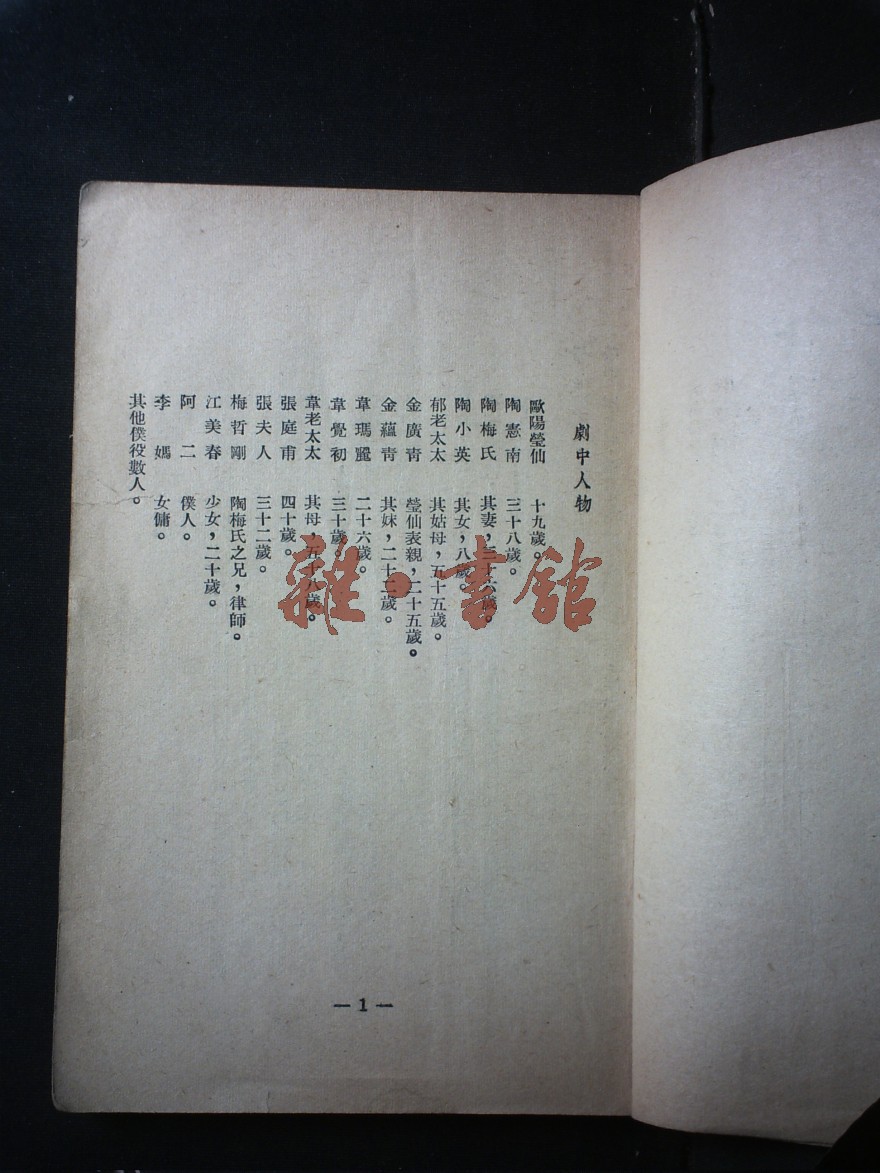 劇中人物
歐陽瑩仙　十九歲。
陶憲南　三十八歲。
陶梅氏　其妻，三十六歲。
陶小英　其女，八歲。
郁老太太　其姑母，五十五歲。
金廣青　瑩仙表親，二十五歲。
金蘊青　其妹，二十二歲。
韋瑪麗　二十六歲。
韋覺初　三十歲。
韋老太太　其母，五十八歲。
張庭甫　四十歲。
張夫人　三十二歲。
梅哲剛　陶梅氏之兄，律師。
江美春　少女，二十歲。
阿二　僕人。
李媽　女傭。
其他僕役數人。
— 1 —
雜·書館